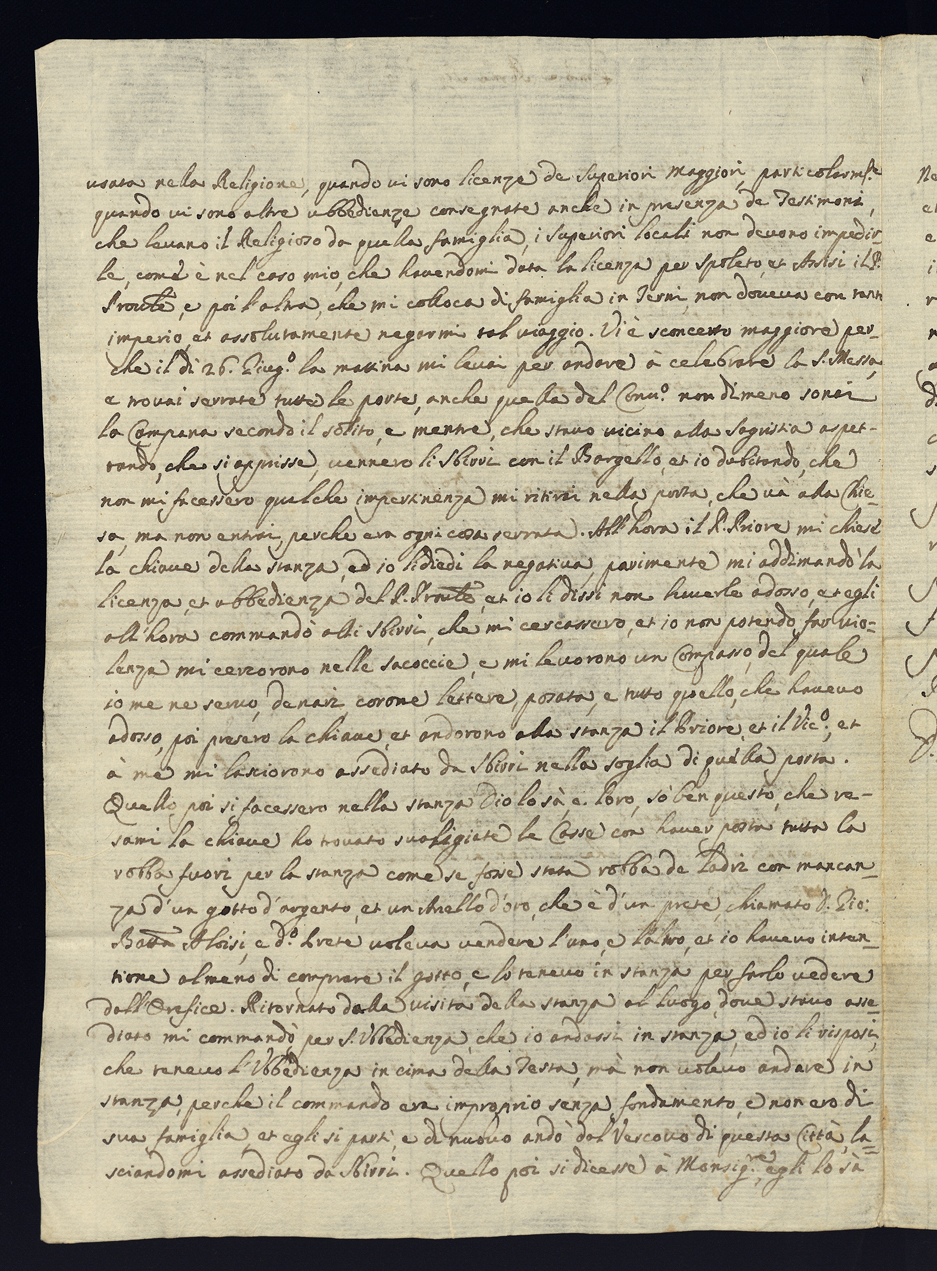 usata nella Religione, quando vi sono licenze de Superiori Maggiori, particolarm.te
quando vi sono altre ubbedienze consegnate anche in presenza de Testimoni,
che levano il Religioso da quella famiglia, i Superiori locali non devono impedir-
le, com'è nel caso mio, che havendomi data la licenza per Spoleto, et Assisi il P.
Pronle, e poi l'altra, che mi colloca di famiglia in Terni, non doveva con tant
imperio, et assolutamente negarmi tal viaggio. Vi è sconcerto maggiore per-
che il dì 26. Giug.o la mattina mi levai per andare à celebrare la S. Messa,
e trovai serrate tutte le porte, anche quella del Conv.o non dimeno sonai
la Campana secondo il solito, e mentre, che stavo vicino alla Sagristia aspet-
tando, che si aprisse, vennero li Sbirri con il Bargello, et io dubitando, che
non mi facessero qualche impertinenza mi ritirai nella porta, che và alla Chie-
sa, ma non entrai, perche era ogni cosa serrata. All'hora il P. Priore mi chiese
la chiave della stanza, ed io li diedi la negativa parimente mi addimandò la
licenza, et obbedienza del P. Pronle, et io li dissi non haverle adosso, et egli
all'hora commandò alli Sbirri, che mi cercassero, et io non potendo far vio-
lenza mi cercorono nelle sacoccie, e mi levorono un Compasso, del quale
io me ne servo, denari, corone, lettere, posata, e tutto quello, che havevo
adosso, poi presero la chiave, et andorono alla stanza il Priore, et il Vic.o, et
à me mi lasciorono assediato da Sbirri nella soglia di quella porta.
Quello poi si facessero nella stanza Dio lo sà e loro, sò ben questo, che re-
sami la chiave ho trovato svaligiate le Casse con haver posta tutta la
robba fuori per la stanza come se fosse stata robba de Ladri con mancan-
za d'un gotto d'argento, et un Anello d'oro, che è d'un prete, chiamato D. Gio:
Batta Aloisi, e d.o Prete voleva vendere l'uno, e l'altro, et io havevo inten-
tione almeno di comprare il gotto, e lo tenevo in stanza per farlo vedere
dall'Orefice. Ritornato dalla visita della stanza al luogo, dove stavo asse-
diato mi commandò per S. Ubbedienza, che io andassi in stanza, ed io li risposi,
che tenevo l'Ubbedienza in cima della Testa, mà non volevo andare in
stanza, perche il commando era improprio senza fondamento, e non ero di
sua famiglia, et egli si partì e di nuovo andò dal Vescovo di questa Città, la-
sciandomi assediato da Sbirri. Quello poi si dicesse à Monsig.re egli lo sà